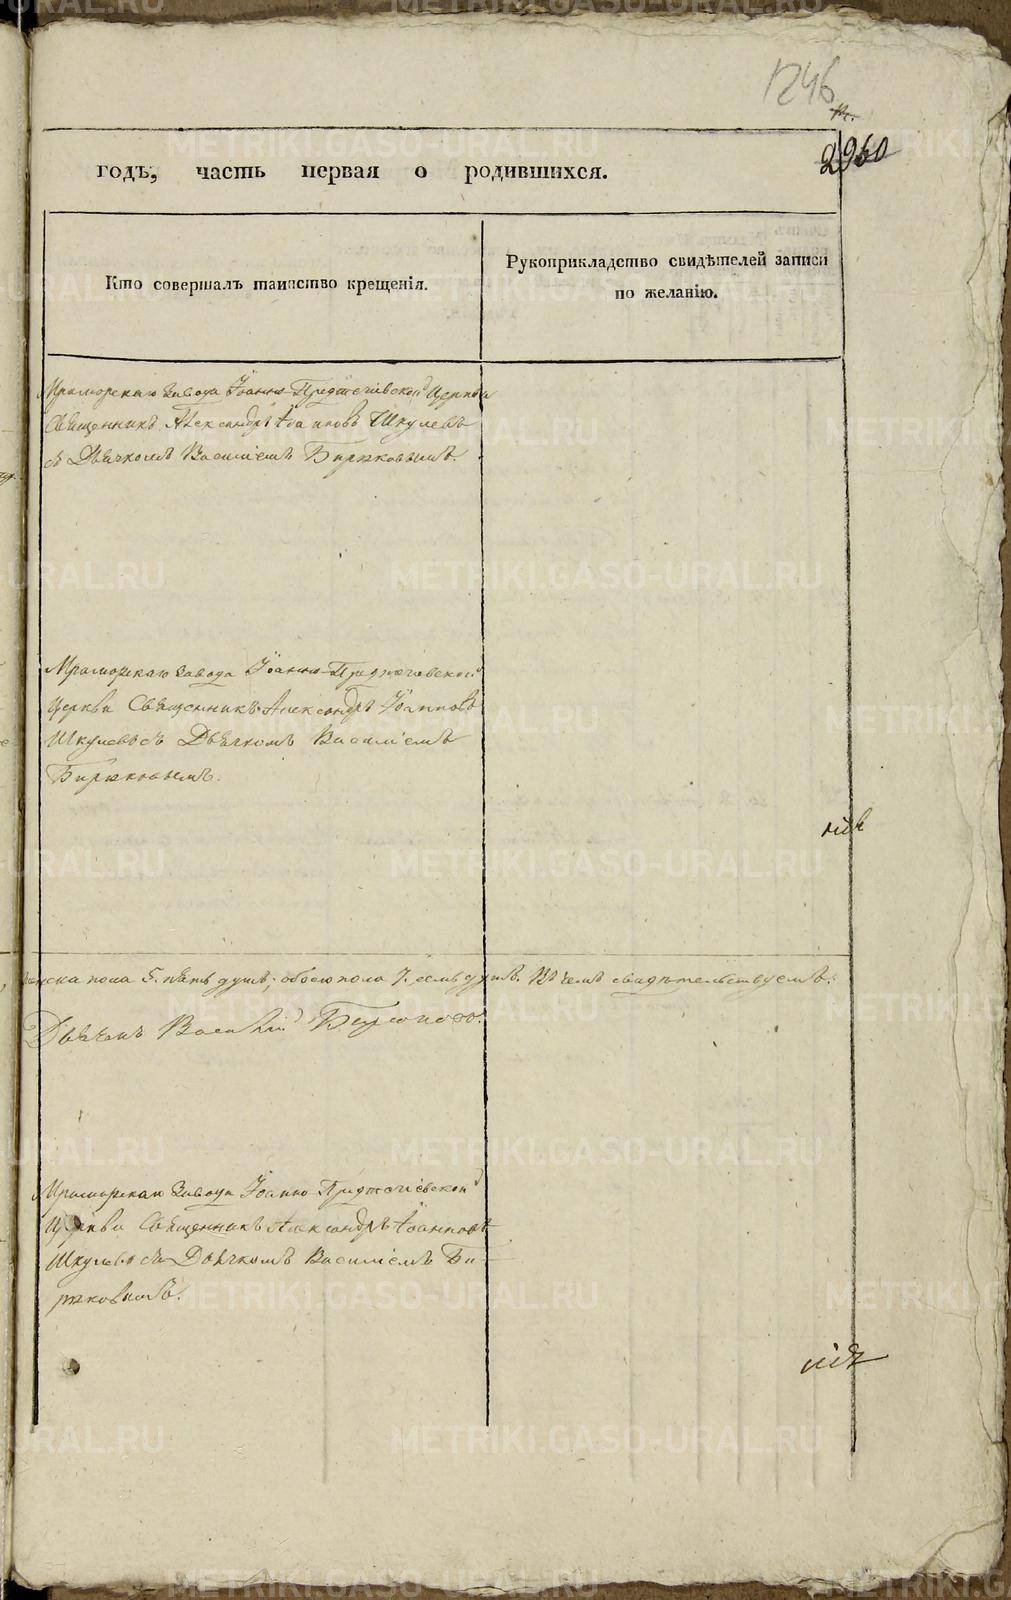 1246
2960
годъ, часть первая о родившихся.
Кто совершалъ таинство крещенія.
Рукоприкладство свидѣтелей записи
по желанію.
Мраморскаго завода Іоанно-Предтечіевской Церкви
Священникъ Александръ Іоанновъ Шкулевъ
съ Дьячкомъ Василіемъ Бирюковымъ.
Мраморскаго завода Іоанно-Предтечевской
Церкви Священникъ Александръ Іоанновъ
Шкулевъ съ Дьячкомъ Василіемъ
Бирюковымъ.
женска пола 5. пять душъ; обоего пола 7. семь душъ. Въ чемъ свидѣтельствуемъ:
Дьячекъ Василій Бирюковъ.
Мраморскаго завода Іоанно-Предтечіевской
Церкви Священникъ Александръ Іоанновъ
Шкулевъ съ Дьячкомъ Василіемъ Би-
рюковымъ.
METRIKI.GASO-URAL.RU